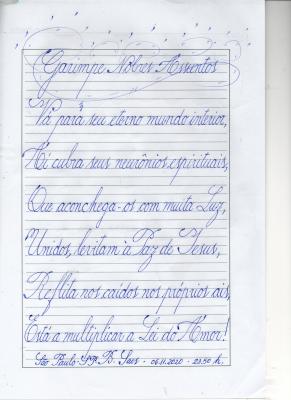 Garimpe Nobres Assentos
Vá para seu eterno mundo interior,
Aí cubra seus neurônios espirituais,
Que aconchega-os com muita Luz,
Unidos, levitam à Paz de Jesus,
Reflita nos caídos nos próprios ais,
Está a multiplicar a Lei do Amor!
São Paulo-SP. B. 06.11.2020 - 23:50 h.